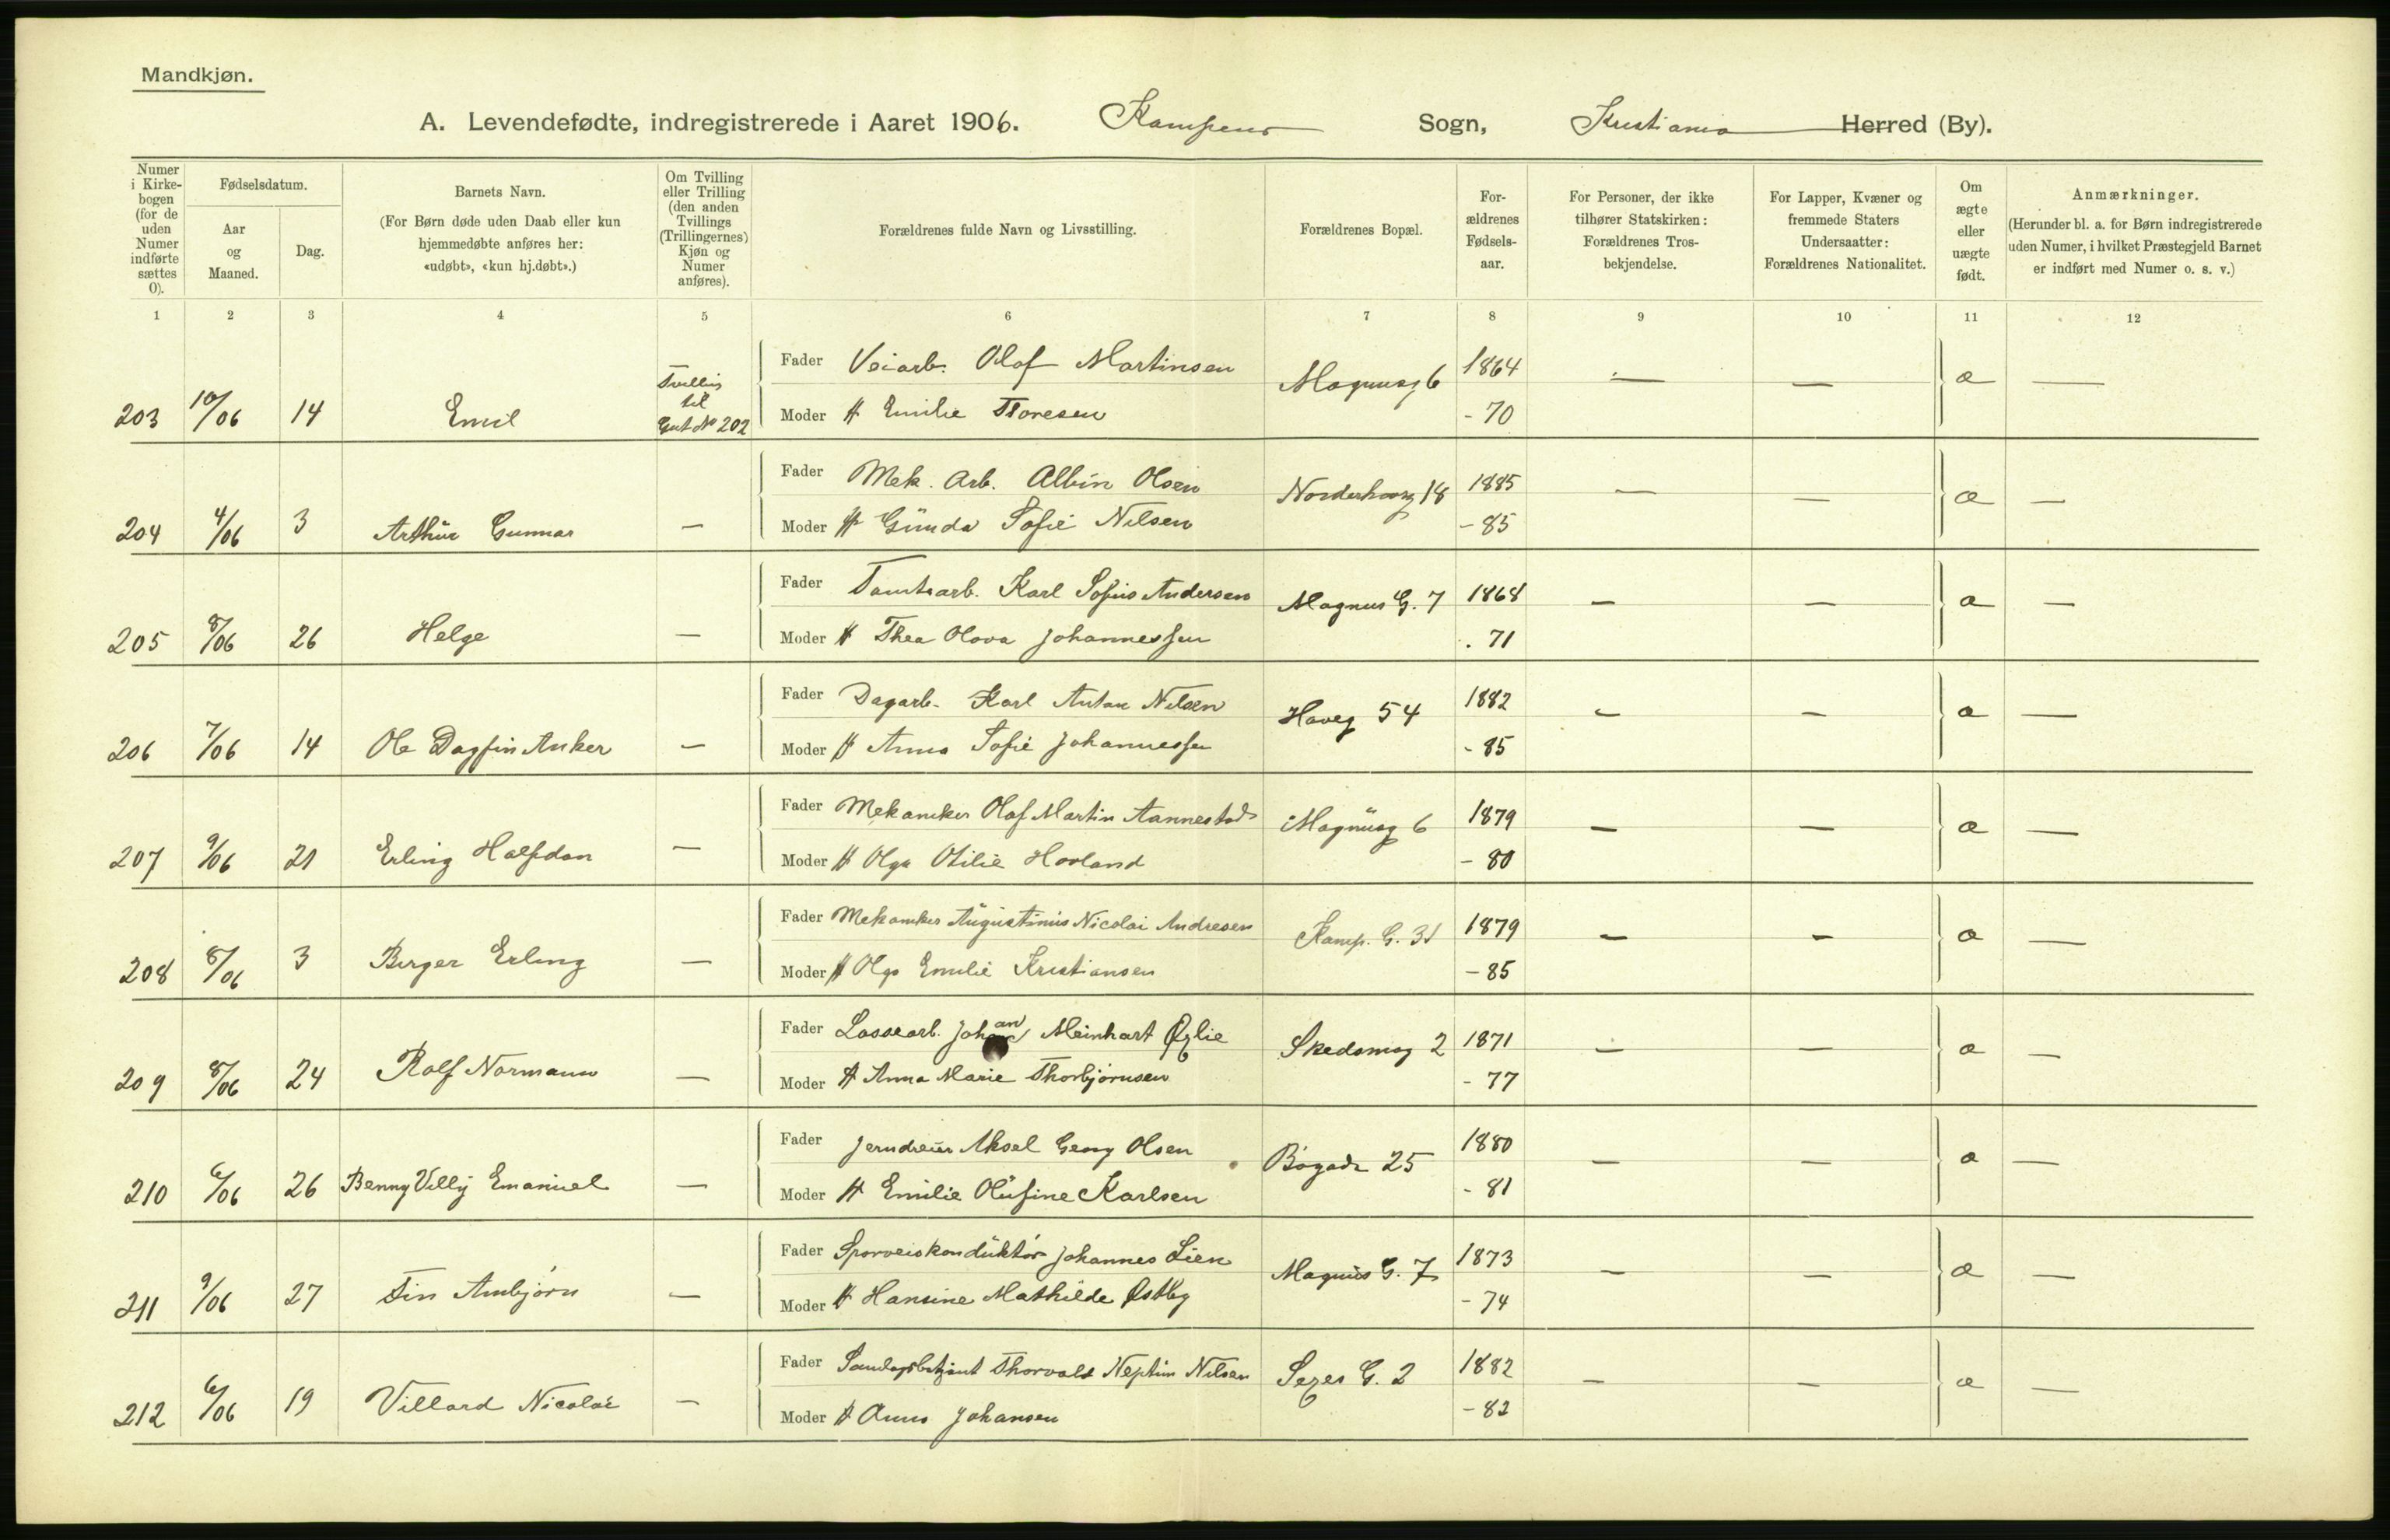 Mandkjøn.
A. Levendefødte, indregistrerede i Aaret 1906. Kampens Sogn, Kristiania Herred (By).
Numer i Kirke-bogen (for de uden Numer indførte sættes 0).
Fødselsdatum.
Aar og Maaned.
Dag.
Barnets Navn.
(For Børn døde uden Daab eller kun hjemmedøbte anføres her: «udøbt», «kun hj.døbt».)
Om Tvilling eller Trilling (den anden Tvillings (Trillingernes) Kjøn og Numer anføres).
Forældrenes fulde Navn og Livsstilling.
Forældrenes Bopæl.
For-ældrenes Fødsels-aar.
For Personer, der ikke tilhører Statskirken: Forældrenes Tros-bekjendelse.
For Lapper, Kvæner og fremmede Staters Undersaatter: Forældrenes Nationalitet.
Om ægte eller uægte født.
Anmærkninger.
(Herunder bl. a. for Børn indregistrerede uden Numer, i hvilket Præstegjeld Barnet er indført med Numer o. s. v.)
1 2 3 4 5 6 7 8 9 10 11 12
Fader Veiarb. Olaf Martinsen Magnusg 6 1864 — — æ —
203 10/06 14 Emil Tvilling til Gut No 202
Moder H Emilie Thoresen - 70
Fader Mek. Arb. Albin Olsen Norderhovsg 18 1885 — — æ —
204 4/06 3 Arthur Gunnar —
Moder H Gunda Sofie Nilsen - 85
Fader Tomtearb. Karl Sofus Andersen Magnus G. 7 1868 — — æ —
205 8/06 26 Helge —
Moder H Thea Olova Johannessen . 71
Fader Dagarb. Karl Anton Nilsen Haveg 54 1882 — — æ —
206 7/06 14 Ole Dagfin Anker —
Moder H Anna Sofie Johannessen - 85
Fader Mekaniker Olaf Martin Aannestad Magnusg 6 1879 — — æ —
207 9/06 21 Erling Halfdan —
Moder H Olga Otilie Hovland - 80
Fader Mekaniker Augustinius Nicolai Andresen Kamp. G. 31 1879 — — æ —
208 8/06 3 Birger Erling —
Moder H Olga Emilie Kristiansen - 85
Fader Lossearb. Johan Meinhart Øglie Skedsmog 2 1871 — — æ —
209 8/06 24 Rolf Normann —
Moder H Anna Marie Thorbjørnsen - 77
Fader Jerndreier Aksel Georg Olsen Bøgade 25 1880 — — æ —
210 6/06 26 Benny Villy Emanuel —
Moder H Emilie Olufine Karlsen - 81
Fader Sporveiskonduktør Johannes Lien Magnus G. 7 1873 — — æ —
211 9/06 27 Finn Arnbjørn —
Moder H Hansine Mathilde Østby - 74
Fader Thorvald Neptun Nilsen G. 2 1882 — — æ —
212 6/06 19 Villard Nicolai —
Moder H Anna Johansen - 82